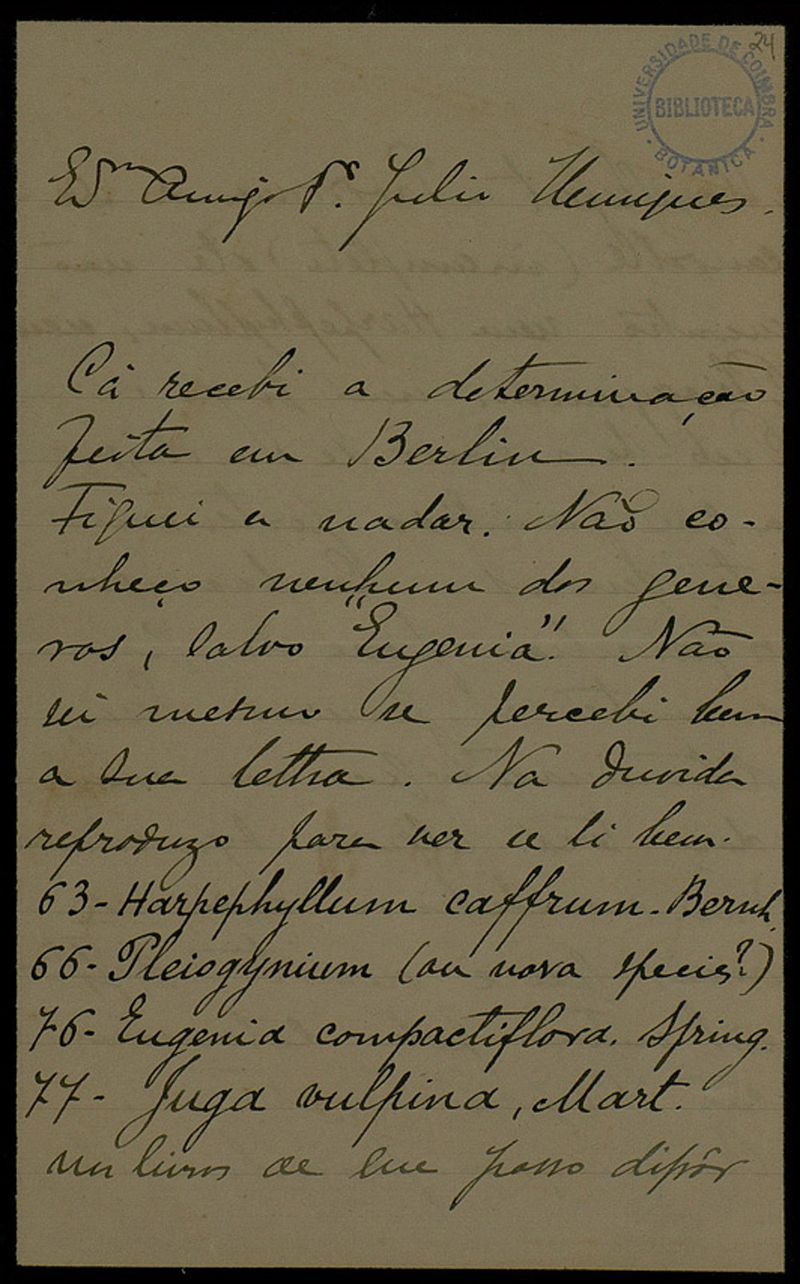 24
UNIVERSIDADE DE COIMBRA
BIBLIOTECA
BOTANICA
Amigo Dr. Julio Henriques.
Cá recebi a determinação
feita em Berlin.
Fiquei a nadar. Não co-
nheço nenhum dos gene-
ros, salvo "Eugenia". Não
sei mesmo se percebi bem
a sua lettra. Na duvida
reproduzo para ver se li bem.
63- Harpephyllum caffrum. Bernh.
66- Pleiogynium (ou nova species?)
76- Eugenia compactiflora. Spring.
77- Juga vulpina, Mart.
nos livros de que posso dispôr